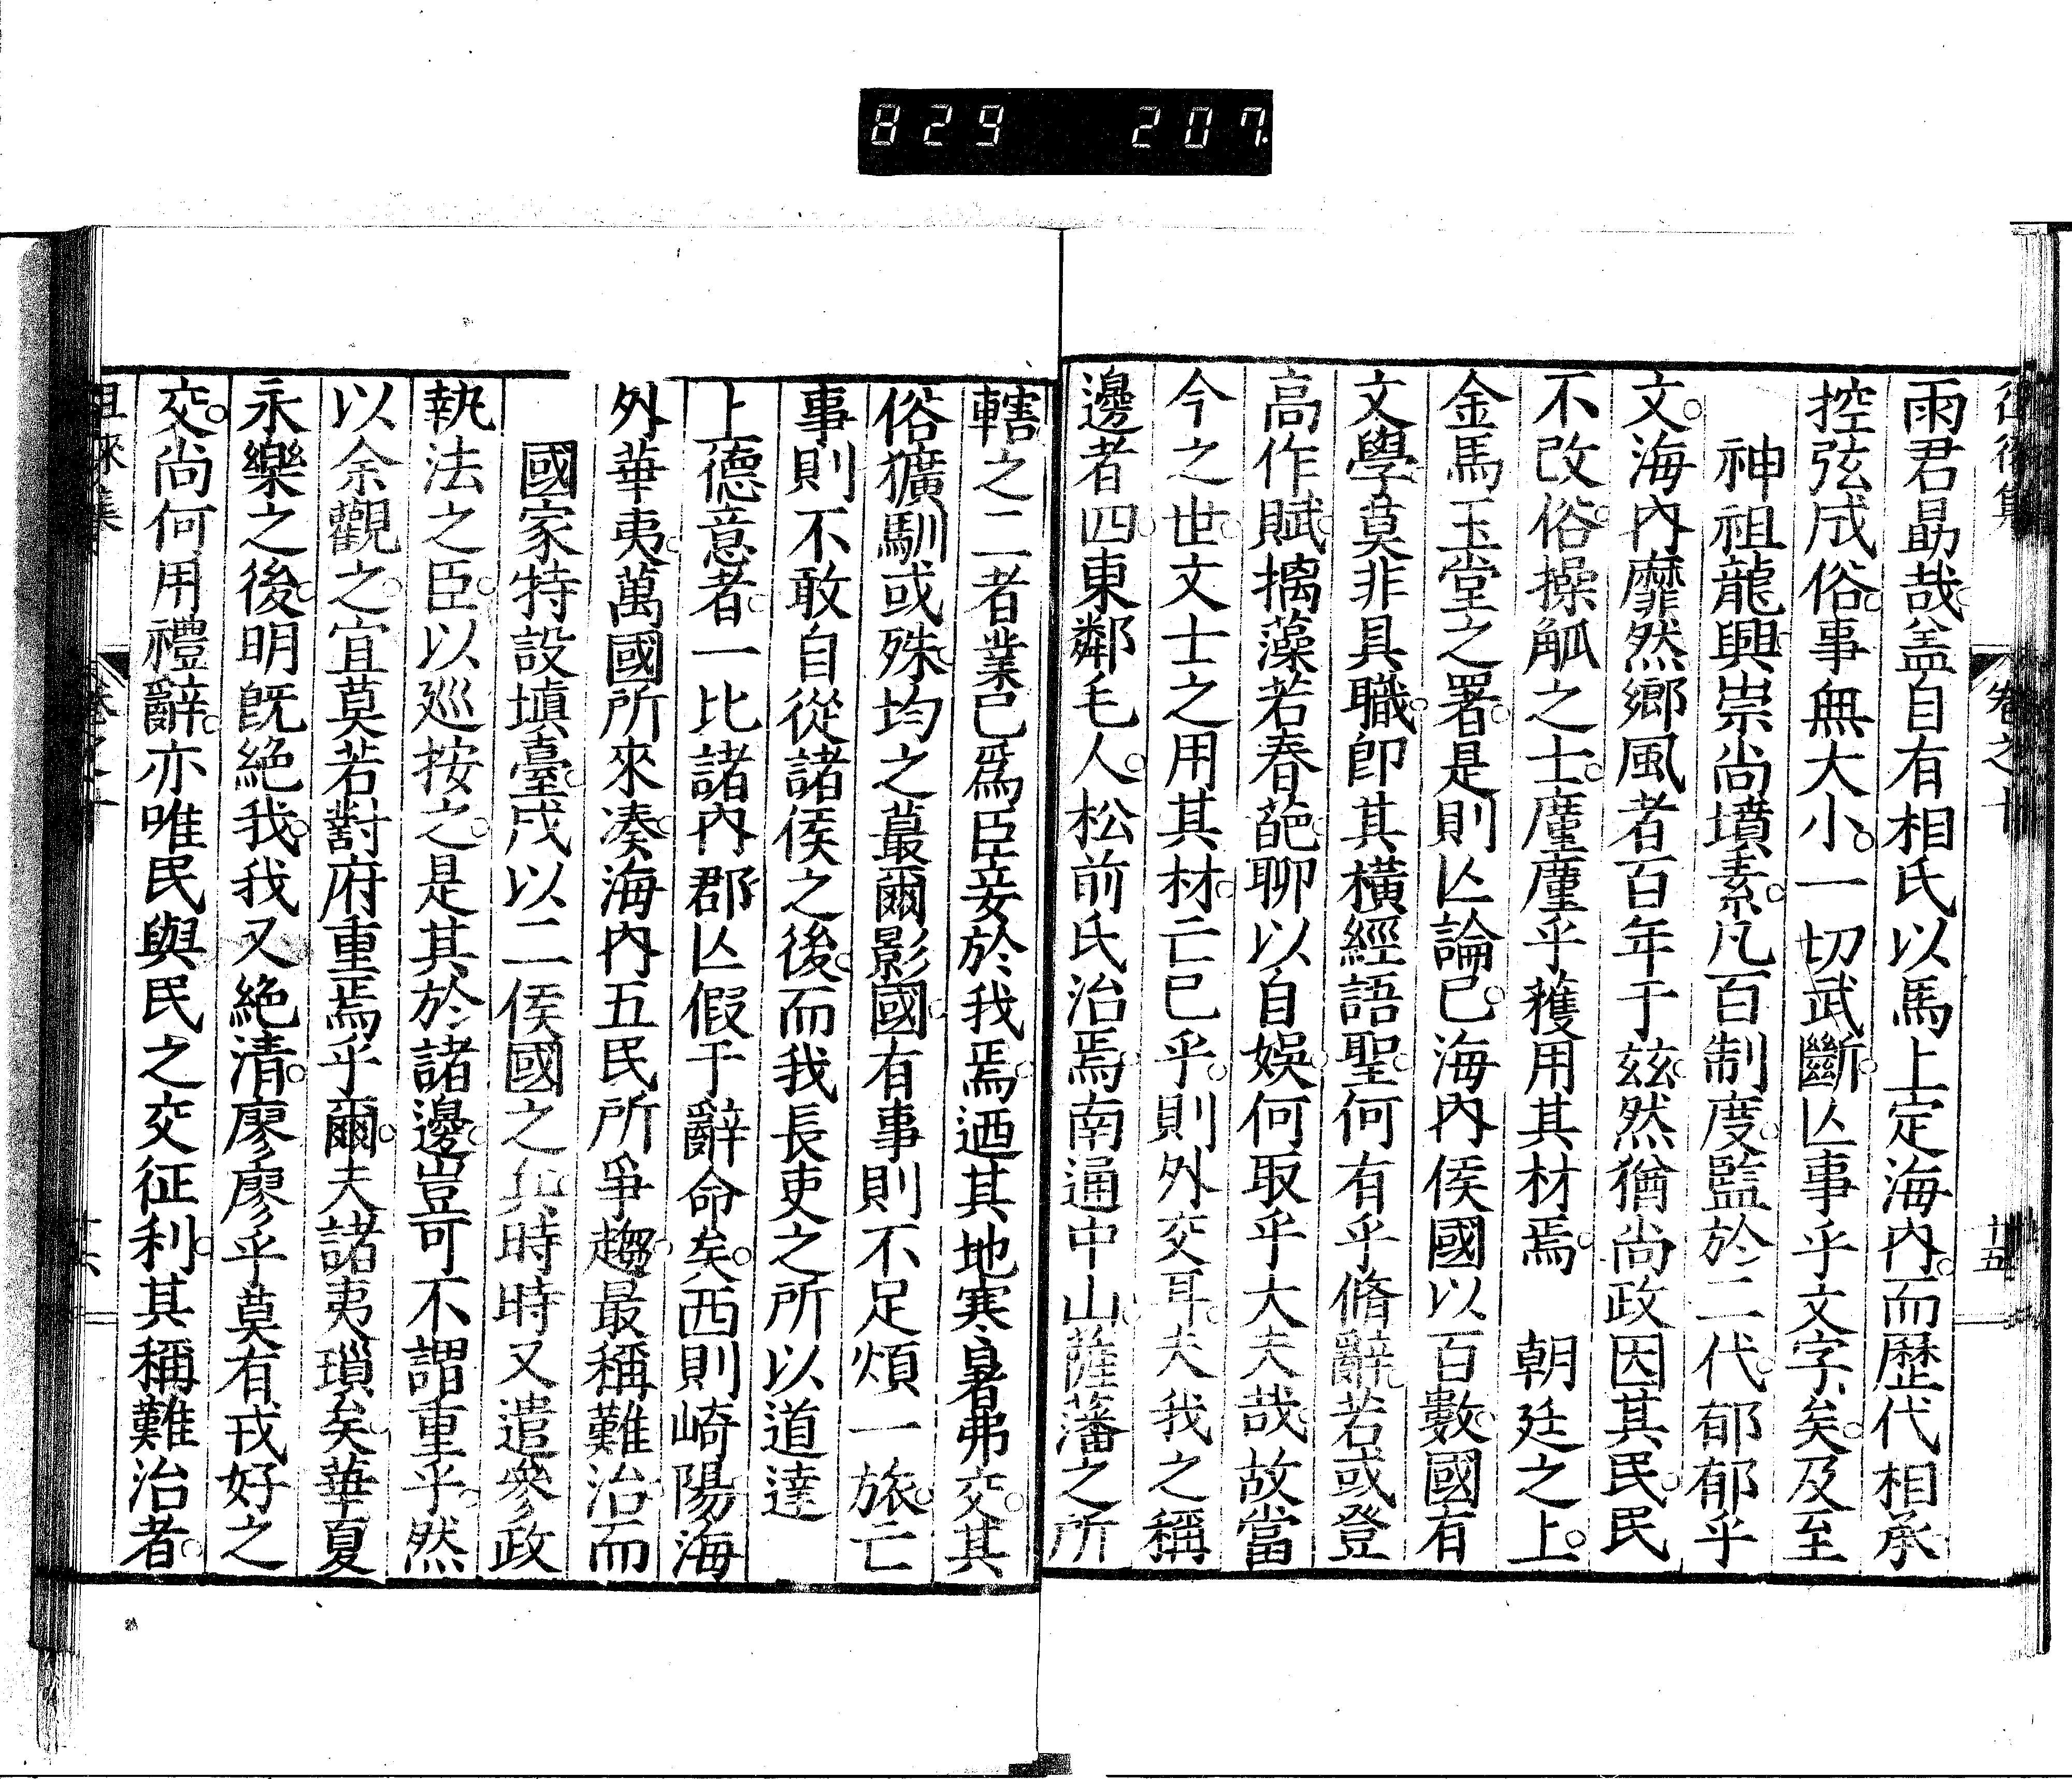 829 207
徂徠集 卷之十 十五
雨君勗哉。盖自有相氏以馬上定海內。而歷代相承
控弦成俗。事無大小。一切武斷。亾事乎文字矣。及至
神祖龍興。崇尚墳素。凡百制度。監於二代。郁郁乎
文。海內靡然鄉風者百年于茲。然猶尚政因其民。民
不改俗。操觚之士。廑廑乎獲用其材焉。 朝廷之上。
金馬玉堂之署。是則亾論已。海內侯國以百數。國有
文學。莫非具職。卽其橫經語聖。何有乎脩辭。若或登
高作賦。摛藻若春葩。聊以自娛。何取乎大夫哉。故當
今之世。文士之用其材。亡已乎。則外交耳。夫我之稱
邊者四。東鄰毛人。松前氏治焉。南通中山。薩藩之所
轄之二者。業已爲臣妾於我焉。迺其地寒暑弗交。其
俗獷馴或殊。均之蕞爾影國。有事則不足煩一旅。亡
事則不敢自從諸侯之後。而我長吏之所以道達
上德意者。一比諸內郡。亾假于辭命矣。西則崎陽。海
外華夷。萬國所來湊。海內五民所爭趨。最稱難治。而
國家特設塡臺。戍以二侯國之兵。時時又遣參政
執法之臣。以巡按之。是其於諸邊。豈可不謂重乎。然
以余觀之。宜莫若對府重焉乎爾。夫諸夷瑣矣。華夏
永樂之後。明旣絕我。我又絕淸。廖廖乎莫有戎好之
交。尚何用禮辭。亦唯民與民之交征利。其稱難治者。
徂徠集 卷之十 十六